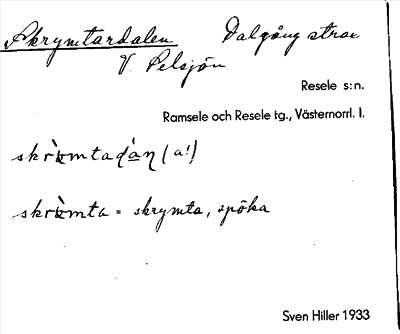 Skrymtardalen Dalgång strax
V. Pelsjön
Resele s:n.
Ramsele och Resele tg., Västernorrl. l.
skrʉ̀mtadàn (a!)
skrʉ̀mta = skrymta, spöka
Sven Hiller 1933